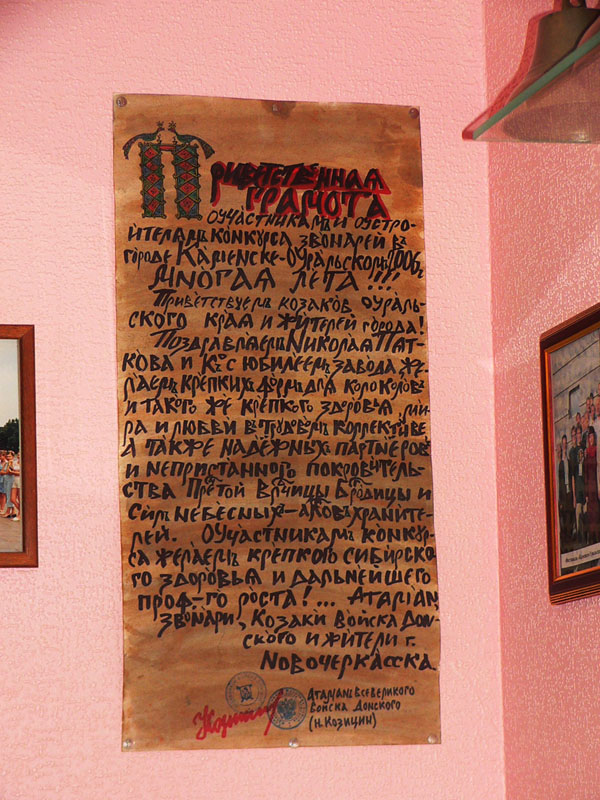 Приветственная
грамота
оучастникамъ и оустро-
ителямъ конкурса звонарей въ
городе Каменске-Оуральскомъ 2006г.
Многая лета!!!
Приветствуемъ козаковъ оураль-
ского края и жителей города!
Поздравляемъ Николая Пят-
кова и Къ с юбилеемъ завода, же-
лаемъ крепкихъ форръ для колоколовъ
и такого же крепкого здоровья, ми-
ра и любви въ трудовомъ коллективе
а также надежныхъ партнеровъ
и непристанного покровитель-
ства Пртой Влчицы Бродицы и
Силъ небесныхъ-агловъ храните-
лей. Оучастникамъ конкур-
са желаемъ крепкого сибирско-
го здоровья и дальнейшего
проф-го роста!... Атаман,
звонари, Козаки Войска Дон-
ского и жители г.
Новочеркасска
Атаманъ Всевеликого
Войска Донского
(Н. Козицин)